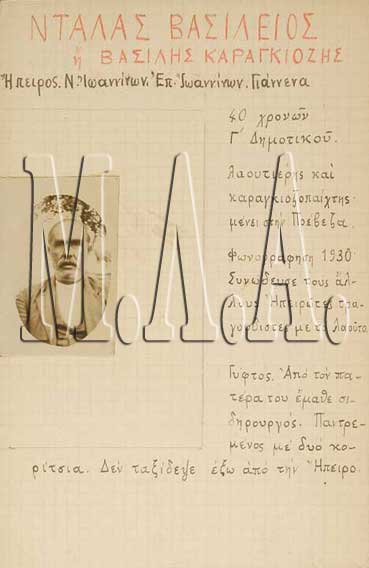 ΝΤΑΛΑΣ ΒΑΣΙΛΕΙΟΣ
ἤ ΒΑΣΙΛΗΣ ΚΑΡΑΓΚΙΟΖΗΣ
Ἤπειρος. Ν. Ἰωαννίνων. Ἐπ. Ἰωαννίνων. Γιάννενα
40 χρονῶν
Γ' Δημοτικοῦ.
Λαουτιέρης καὶ
καραγκιοζοπαίχτης
μένει στην Πρέβεζα.
Φωνογράφηση 1930
Συνώδευσε τους ἄλ-
λους Ἠπειρῶτες τρα-
γουδιστές με το λαοῦτο
Γυφτος. Ἀπο τον πα-
τέρα του ἔμαθε σι-
δηρουργός. Παντρε-
μένος με δυό κο-
ρίτσια. Δεν ταξίδεψε ἔξω ἀπό την Ἤπειρο.
Μ.Λ.Α.